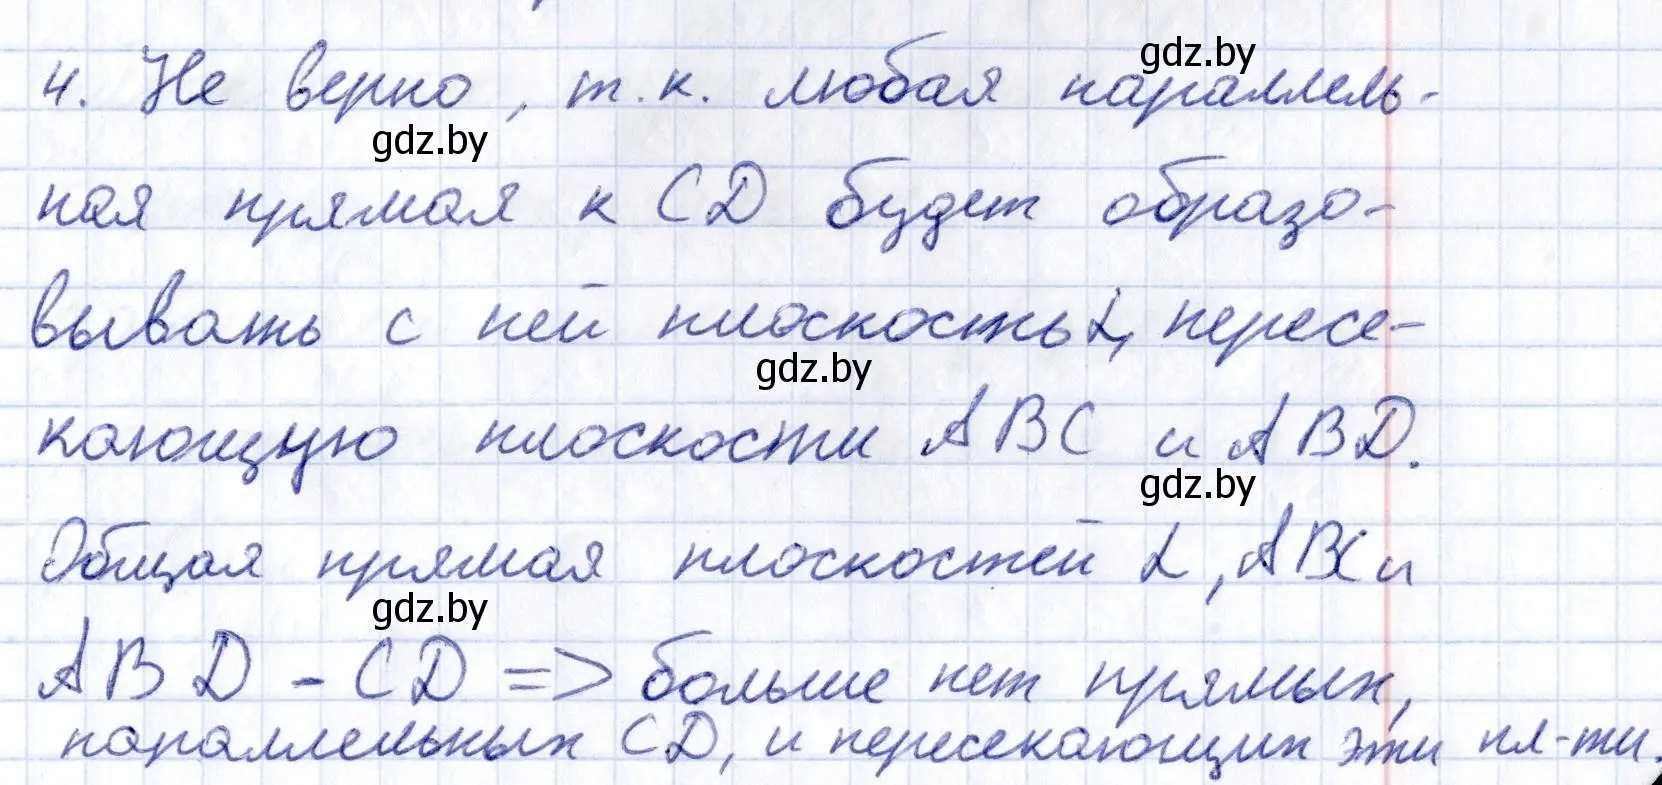 gdz.by
4. Не верно, т.к. любая параллель-
gdz.by
ная прямая к CD будет образо-
вывать с ней плоскость α, пересе-
gdz.by
кающую плоскости ABC и ABD.
gdz.by
Общая прямая плоскостей α, ABC и
gdz.by
ABD - CD => больше нет прямых,
параллельных CD, и пересекающих эти пл-ти.